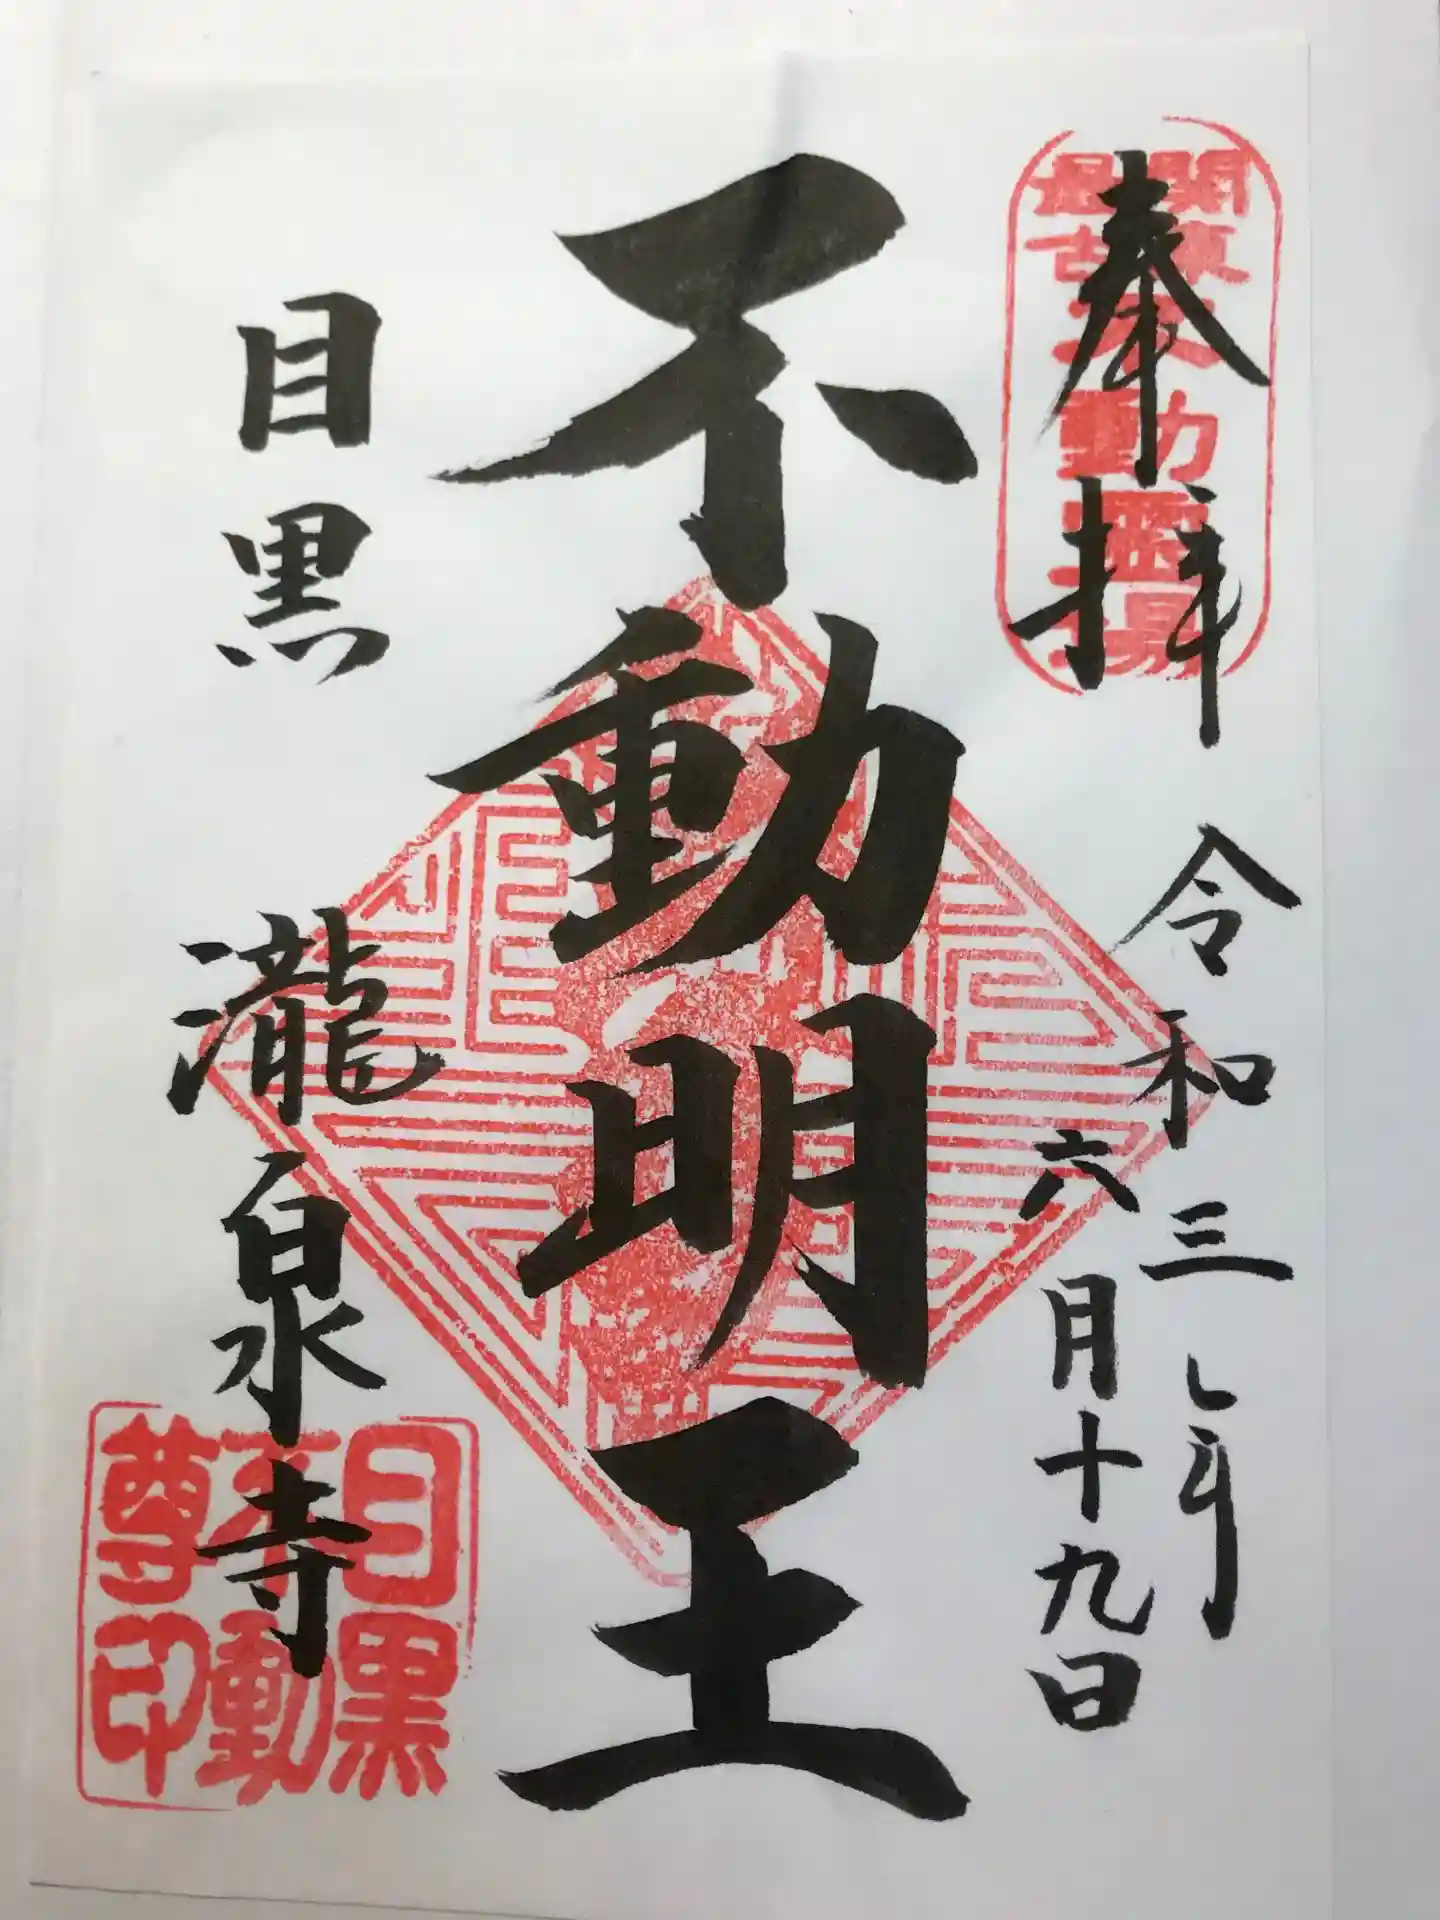 奉拝
関東最古不動霊場
令和三年
六月十九日
不動明王
目黒
瀧泉寺
目黒
不動
尊印